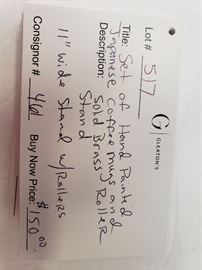 G
GLEATON'S
Lot # 517
Title: Set of Hand Painted
Japanese Coffee mugs and
Description: Solid Brass Roller
Stand
11" wide stand w/Rollers
Consignor # 461 Buy Now Price: $150.00